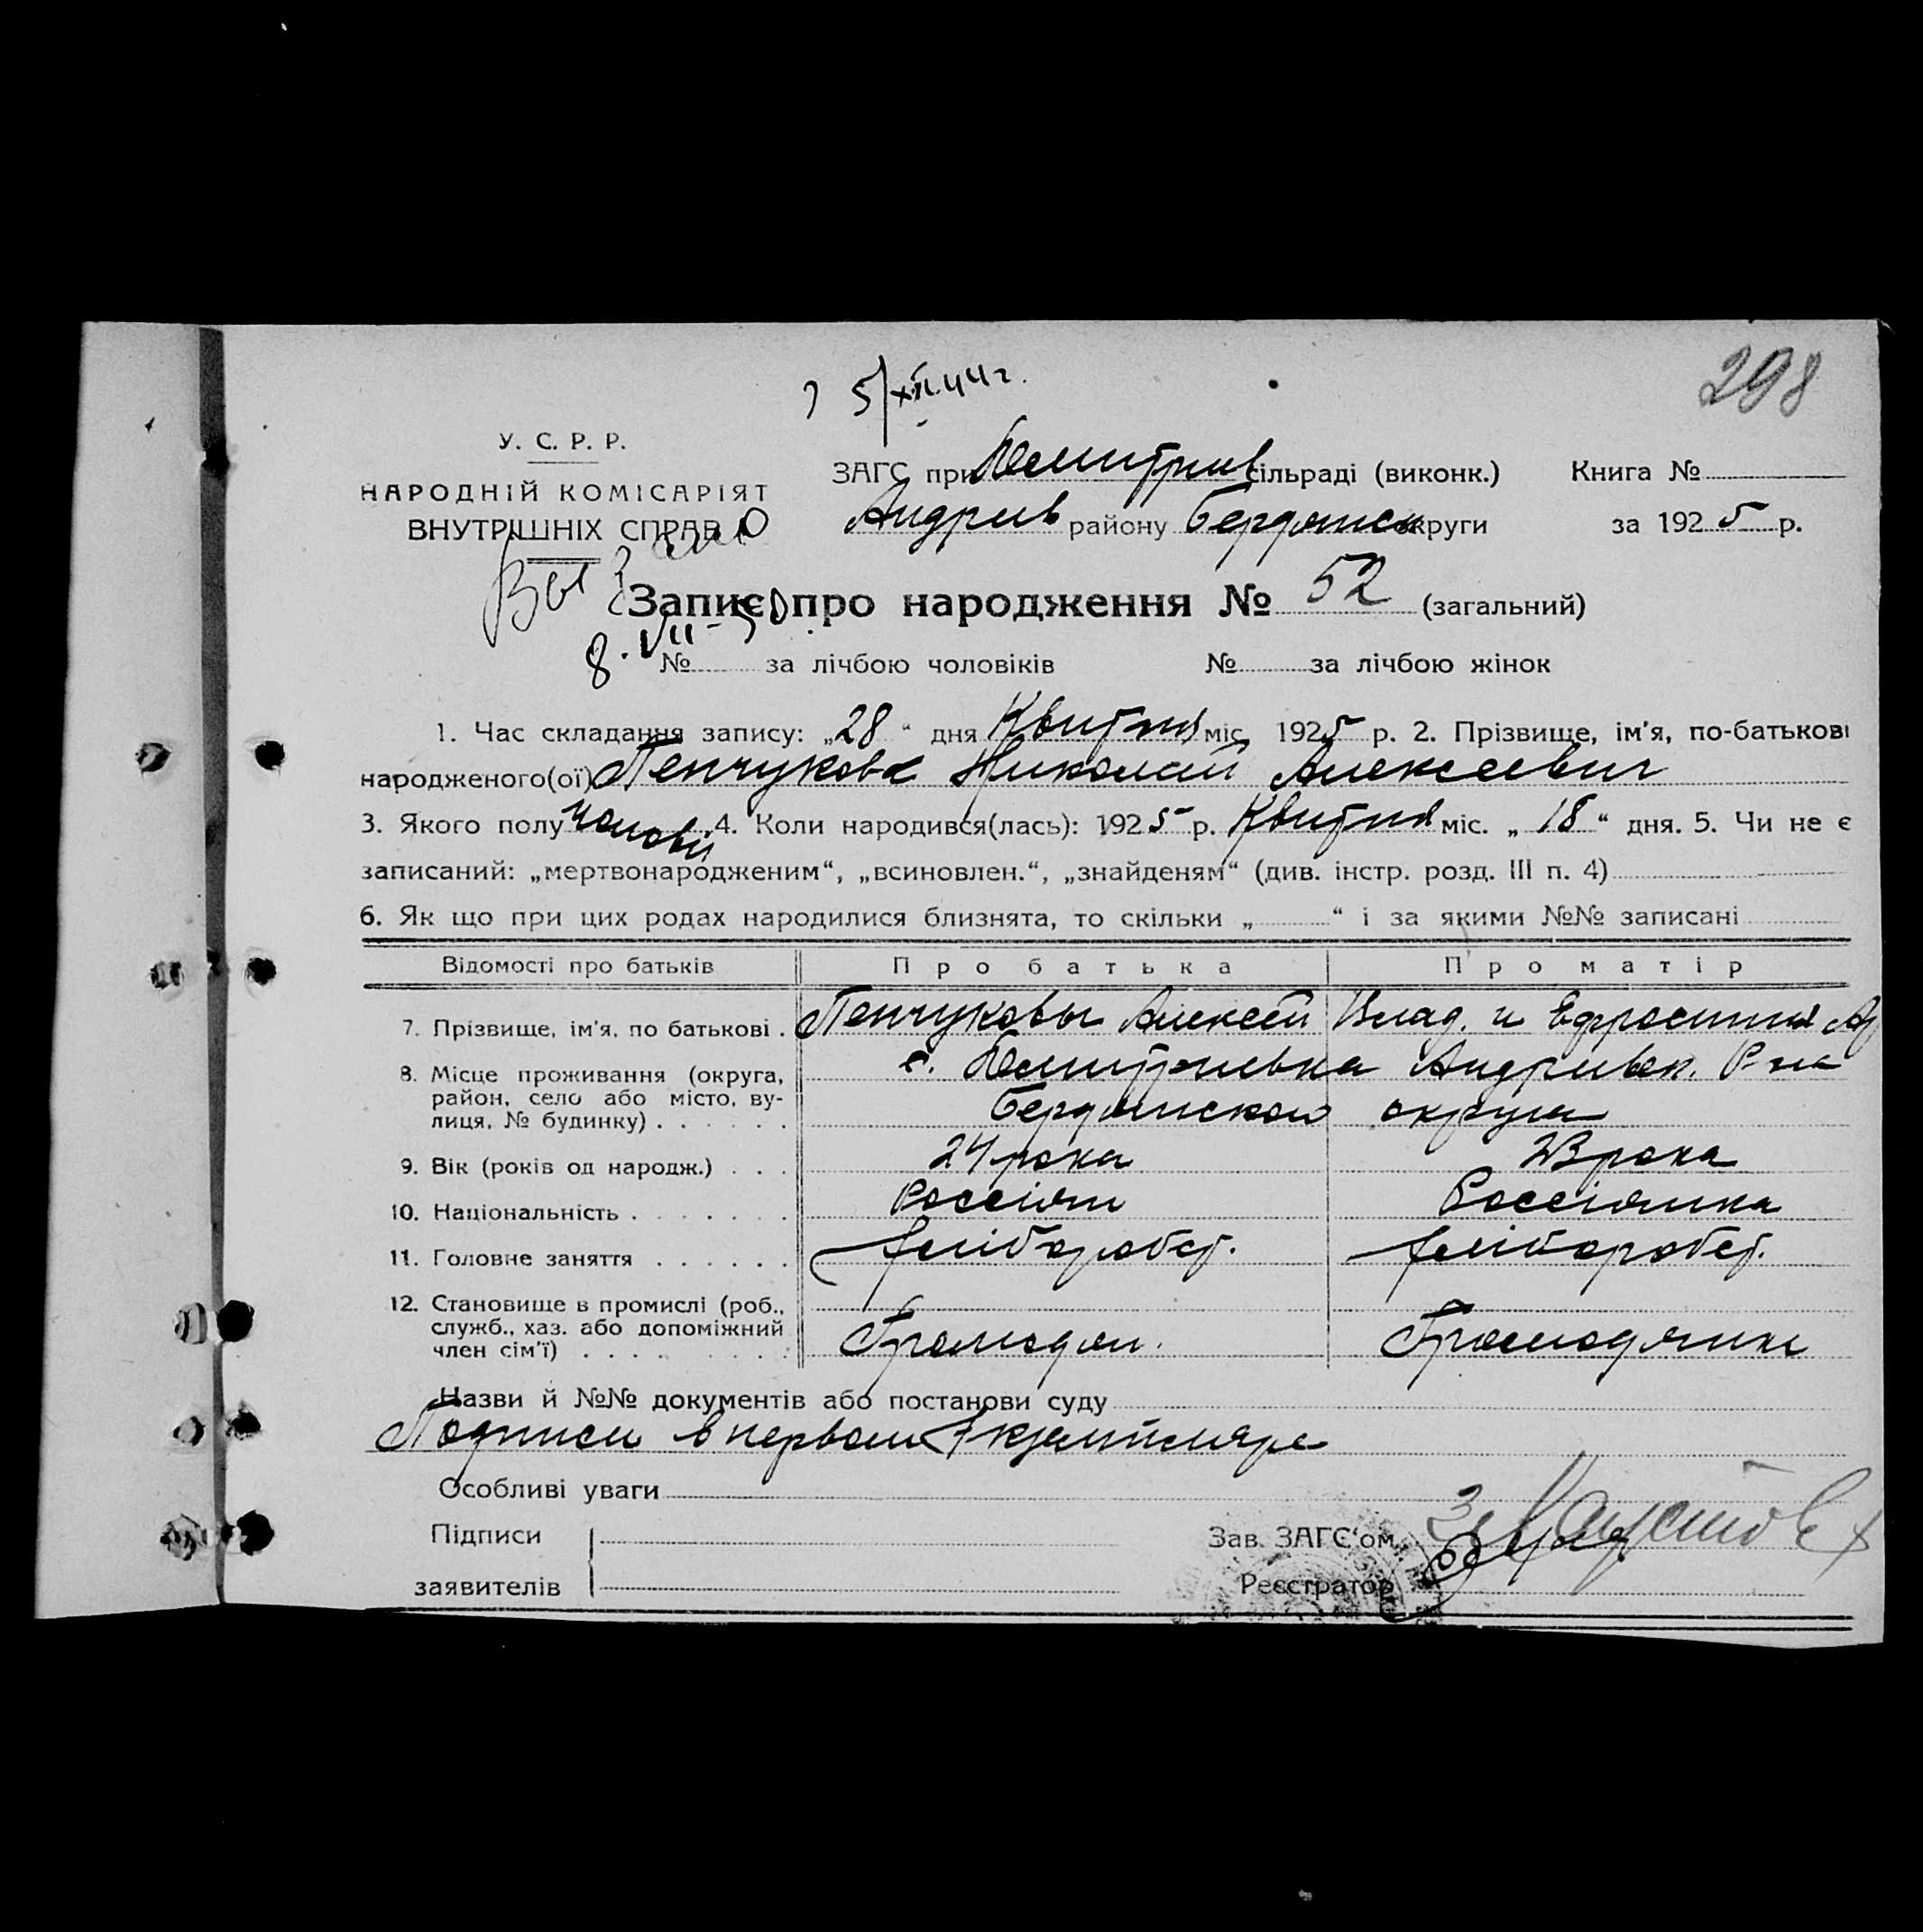 298
5/XII.44 г.
У. С. Р. Р.
НАРОДНІЙ КОМІСАРІЯТ
ВНУТРІШНІХ СПРАВ
ЗАГС при Дмитрив сільраді (виконк.) Книга №
Андрив району Бердянск округи за 1925 р.
8. VII-50
Запис про народження № 52 (загальний)
№ за лічбою чоловіків № за лічбою жінок
1. Час складання запису: „28“ дня Квитня міс. 1925 р. 2. Прізвище, ім'я, по-батькові
народженого(ої) Пенчуков Николай Алексеевич
3. Якого полу чолові 4. Коли народився(лась): 1925 р. Квитня міс. „18“ дня. 5. Чи не є
записаний: „мертвонародженим“, „всиновлен.“, „знайденям“ (див. інстр. розд. III п. 4)
6. Як що при цих родах народилися близнята, то скільки „ “ і за якими №№ записані
Відомості про батьків Про батька Про матір
7. Прізвище, ім'я, по батькові . Пенчуковы Алексей Влад. и Ефросиния
8. Місце проживання (округа, с. Дмитриевка Андривск. Р-на
район, село або місто, ву-
лиця, № будинку) . . . . . . Бердянской округи
9. Вік (років од народж.) . . . 24 рока 23 рока
10. Національність . . . . . . . Россіян Россіянка
11. Головне заняття . . . . . . хліборобст. хліборобст.
12. Становище в промислі (роб.,
служб., хаз. або допоміжний
член сім'ї) . . . . Громадян. Громадянка
Назви й №№ документів або постанови суду
Подписи в первом Экземпляре
Особливі уваги
Підписи Зав. ЗАГС'ом
заявителів Реєстратор